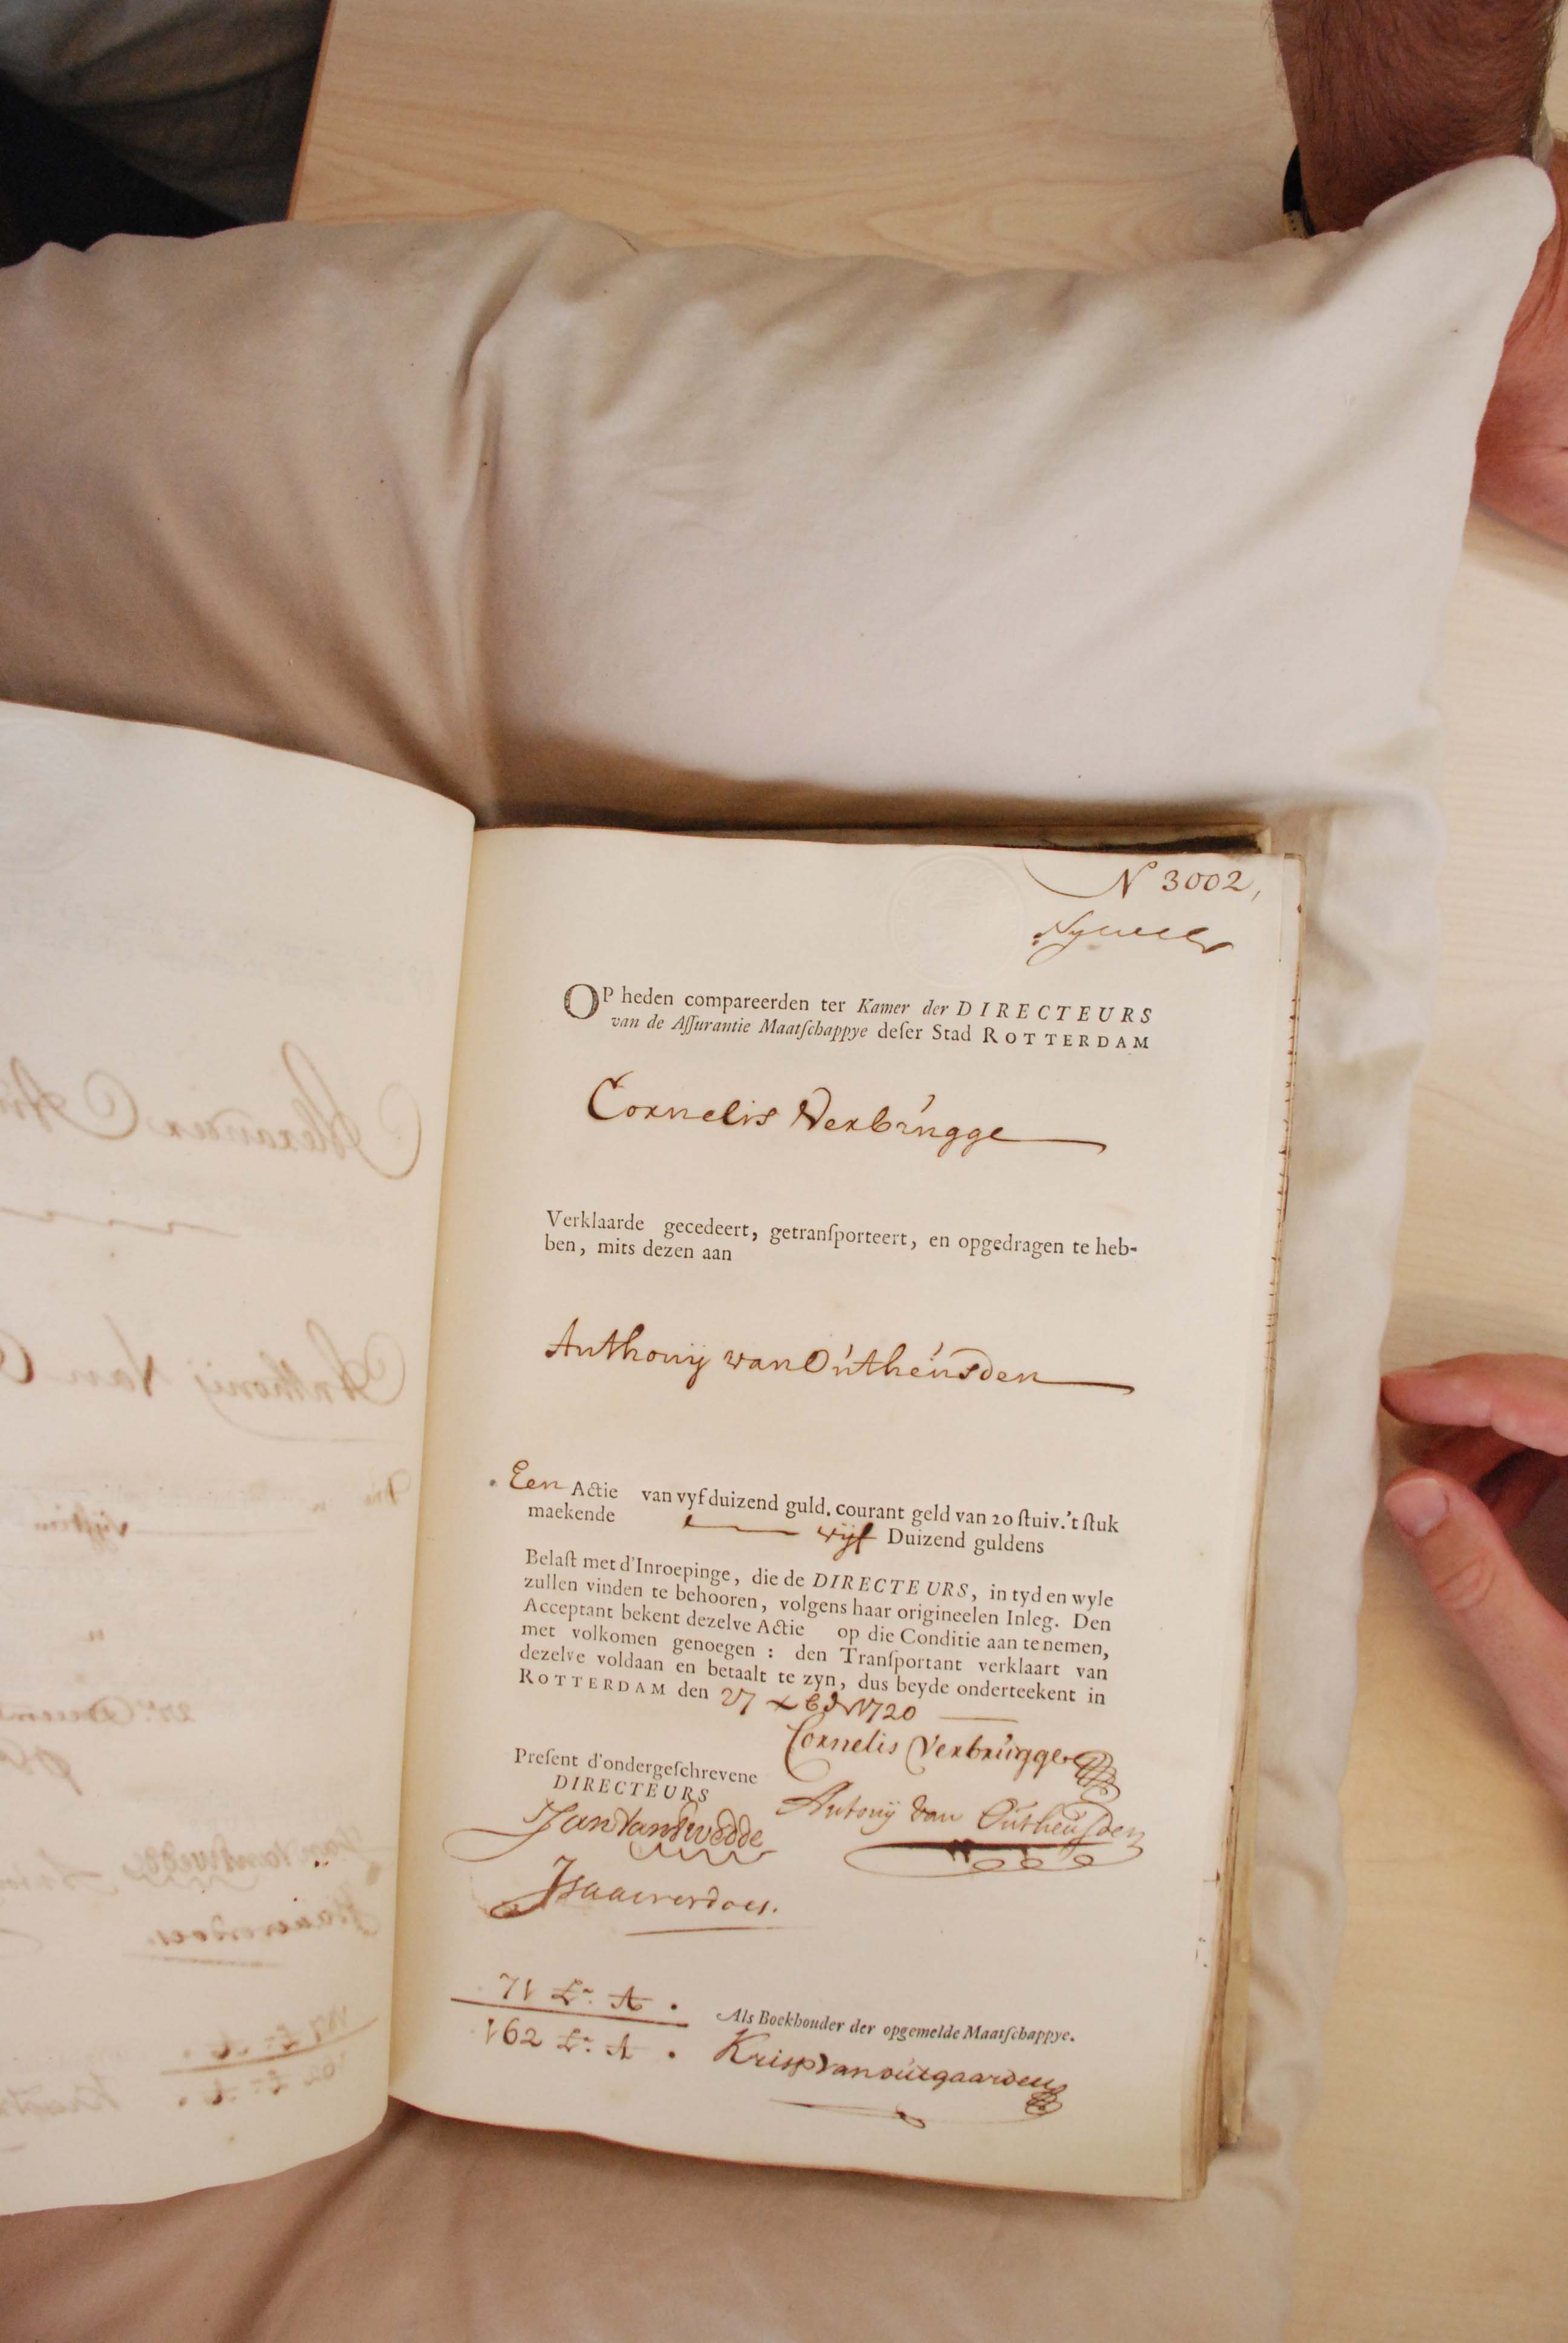 N 3002,
OP heden compareerden ter Kamer der DIRECTEURS
van de Aſſurantie Maatſchappye deſer Stad ROTTERDAM
Cornelis Verbrugge
Verklaarde gecedeert, getranſporteert, en opgedragen te heb-
ben, mits dezen aan
Anthonij van Outheusden
Een Actie van vyfduizend guld. courant geld van 20 ſtuiv. 't ſtuk
maekende vijf Duizend guldens
Belaſt met d'Inroepinge, die de DIRECTEURS, in tyd en wyle
zullen vinden te behooren, volgens haar origineelen Inleg. Den
Acceptant bekent dezelve Actie op die Conditie aan te nemen,
met volkomen genoegen : den Tranſportant verklaart van
dezelve voldaan en betaalt te zyn, dus beyde onderteekent in
ROTTERDAM den 27 Xbr 1720
Cornelis Verbrugge
Preſent d'ondergeſchrevene
DIRECTEURS
Antonij van Outheusden
Jan van Twedde
Isaac verdoes.
71 Lr. A.
162 Lr. A.
Als Boekhouder der opgemelde Maatſchappye.
Krisp van outgaarden